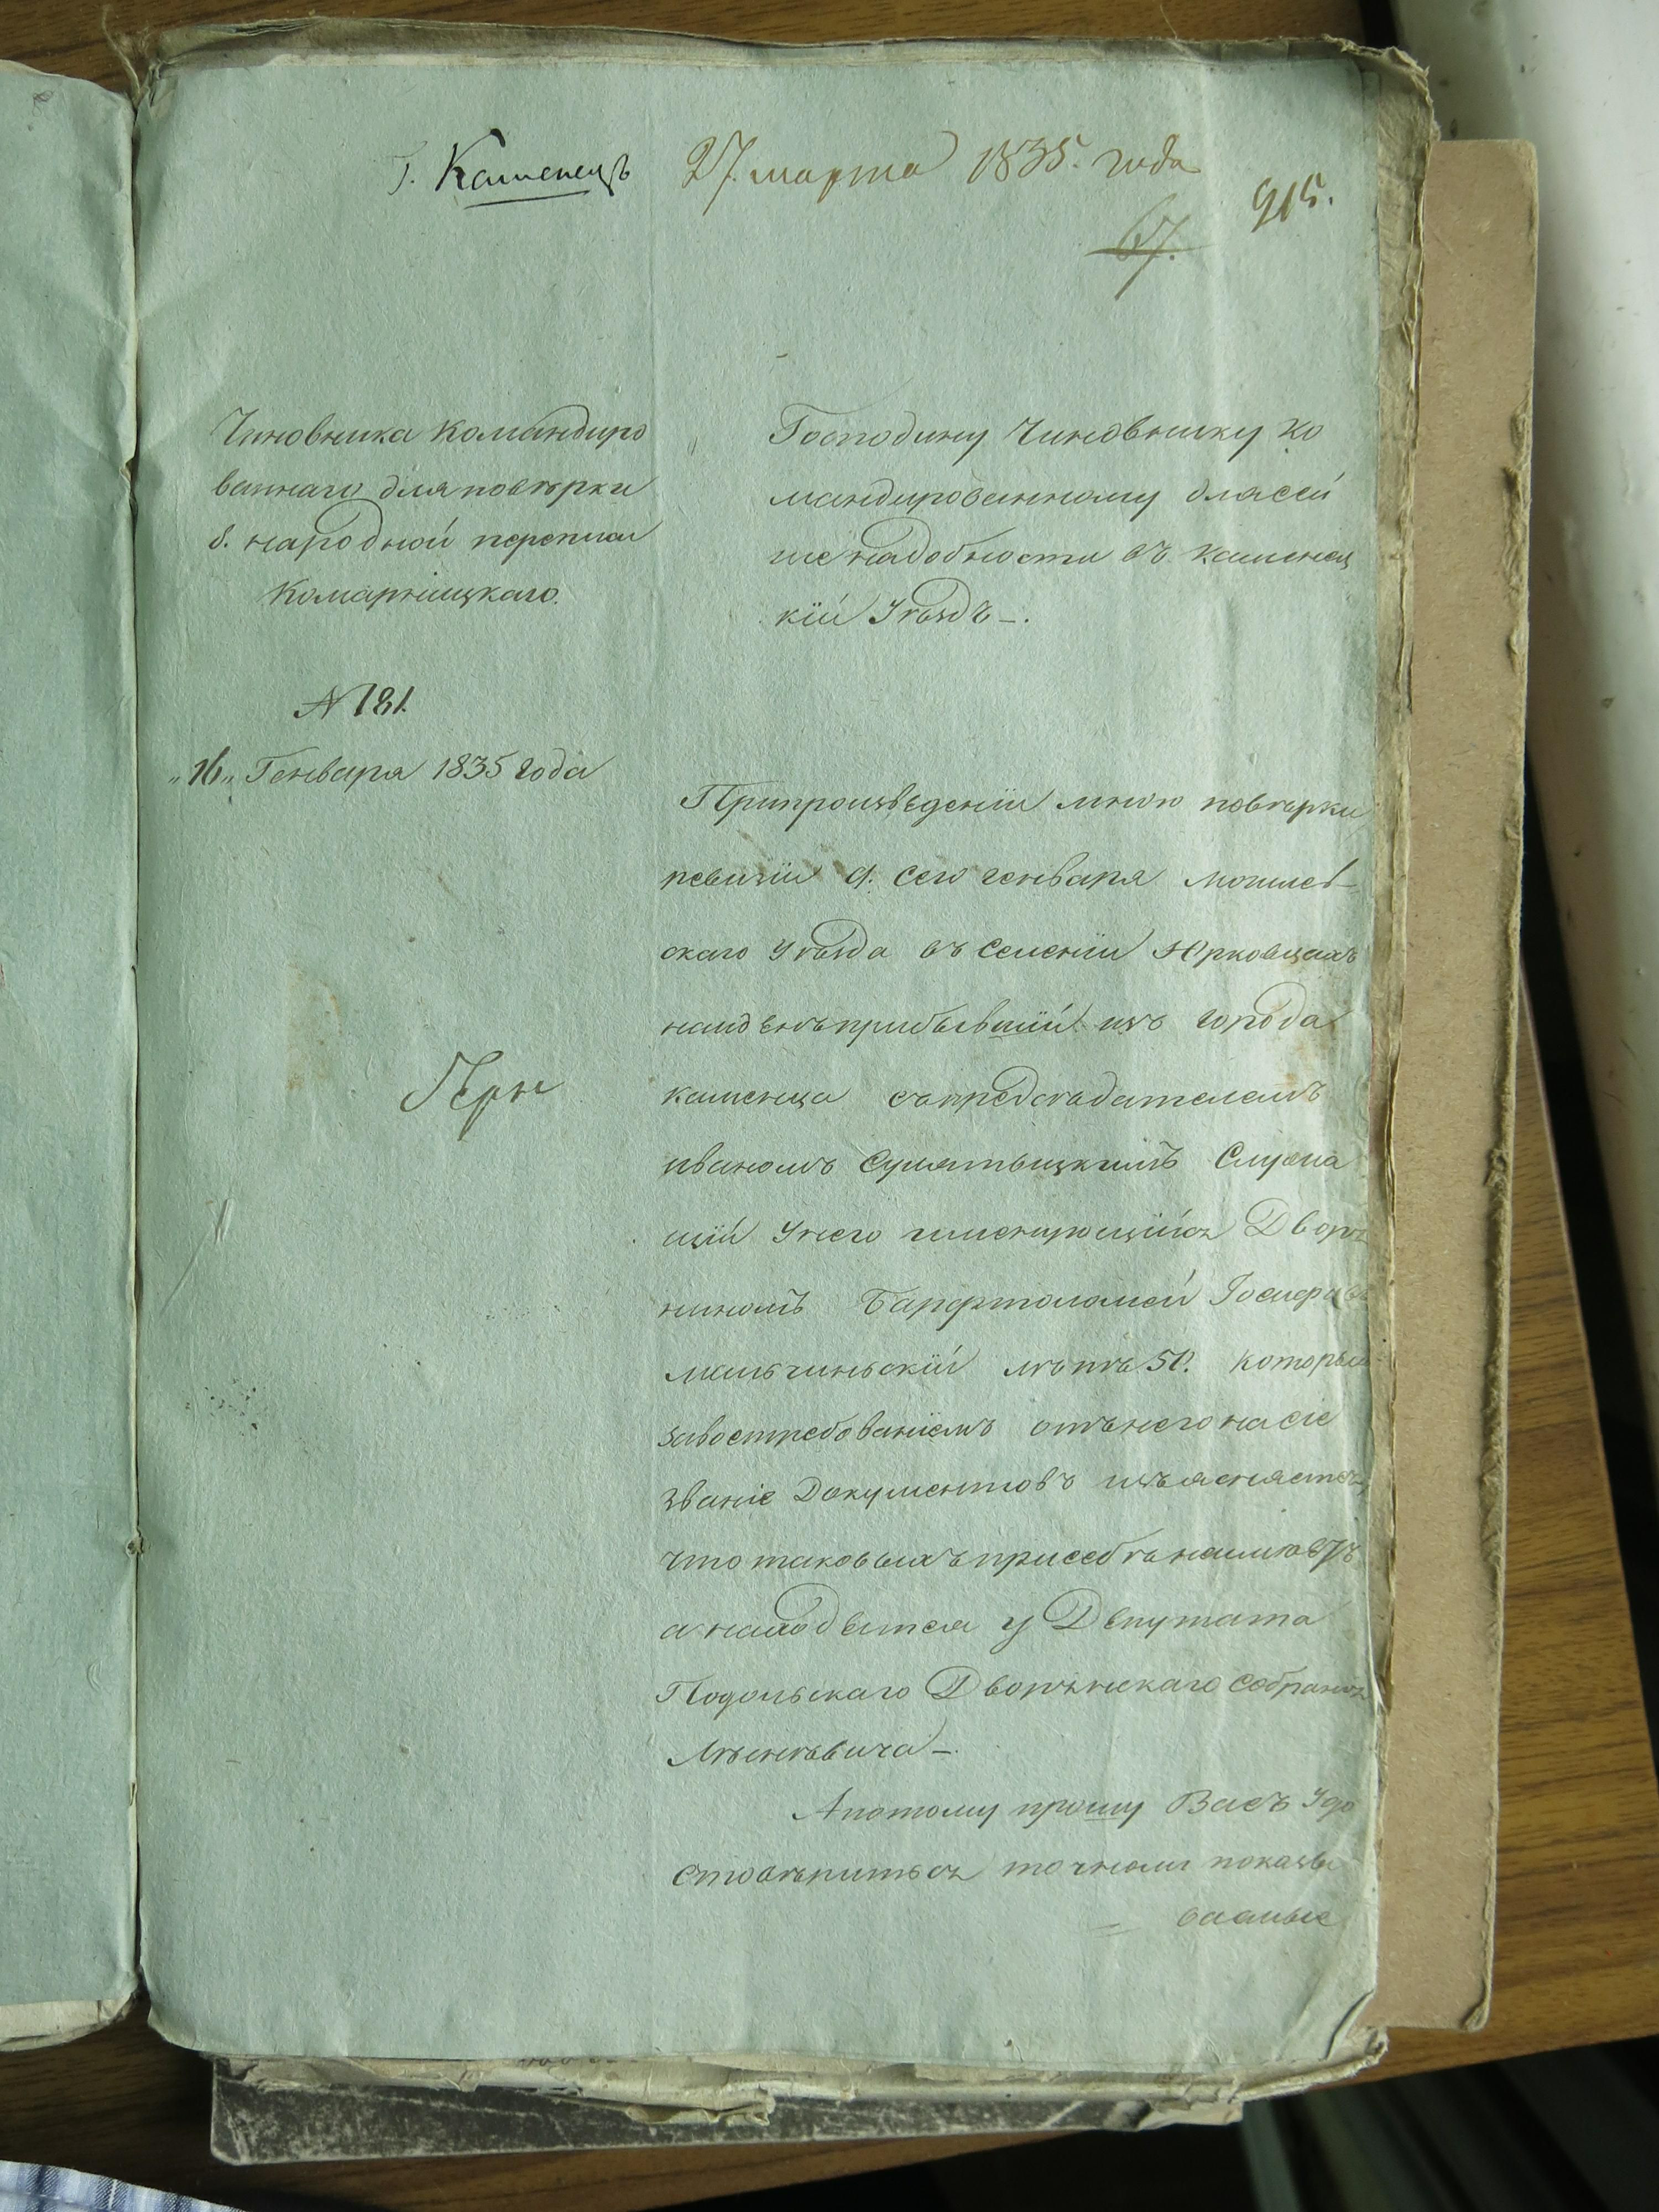 Г. Каменецъ 27. марта 1835. года
915.
67.
Чиновника Командиро
ваннаго для повѣрки
8. народной переписи
Комарницкаго.
N 181.
„16„ Генваря 1835 года
Господину Чиновнику Ко
мандированному для сей
же надобности въ Каменец
кій Уѣздъ –.
При произведеніи мною повѣрки
ревизіи 9. сего генваря могилев-
скаго Уѣзда въ селеніи Юрковцахъ
найденъ прибывшій изъ города
каменца съ предсѣдателемъ
иваномъ Сулятыцкимъ Служа
щій Унего именующійся Дворя
ниномъ Барфтоломей Іосифов
мильчиньскій лѣтъ 50. который
за востребованіемъ отъ него на сіе
званіе Документовъ изъясняется,
что таковыхъ при себѣ не имѣетъ
а находятся у Депутата
Подольскаго Дворянскаго собранія
–.
А потому прошу Васъ Удо
стовѣриться точноли показы
ваемые